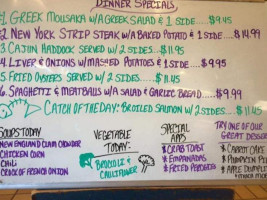 DINNER SPECIALS
#1. GREEK MOUSAKA W/A GREEK SALAD & 1 SIDE.... $9.45
#2 NEW YORK STRIP STEAK W/A BAKED POTATO & 1 SIDE... $14.99
3 CAJUN HADDOCK SERVED W/ 2 SIDES... $11.45
4 LIVER & ONIONS W/MASHED POTATOES & 1 SIDE... $9.95
5 FRIED OYSTERS SERVED W/ 2 SIDES.... $11.45
6 SPAGHETTI & MEATBALLS W/A SALAD & GARLIC BREAD... $9.99
CATCH OF THE DAY: BROILED SALMON W/ 2 SIDES... $11.45
SOUPS TODAY
NEW ENGLAND CLAM CHOWDER
CHICKEN CORN
CHILI
CROCK OF FRENCH ONION
VEGETABLE
TODAY:
BROCCOLI &
CAULIFLOWER
SPECIAL
APPS
* CRAB TOAST
* EMPANADAS
* FRIED PEROGIES
TRY ONE OF OUR
GREAT DESSERTS
* CARROT CAKE
* PUMPKIN
* APPLE DUMPLING